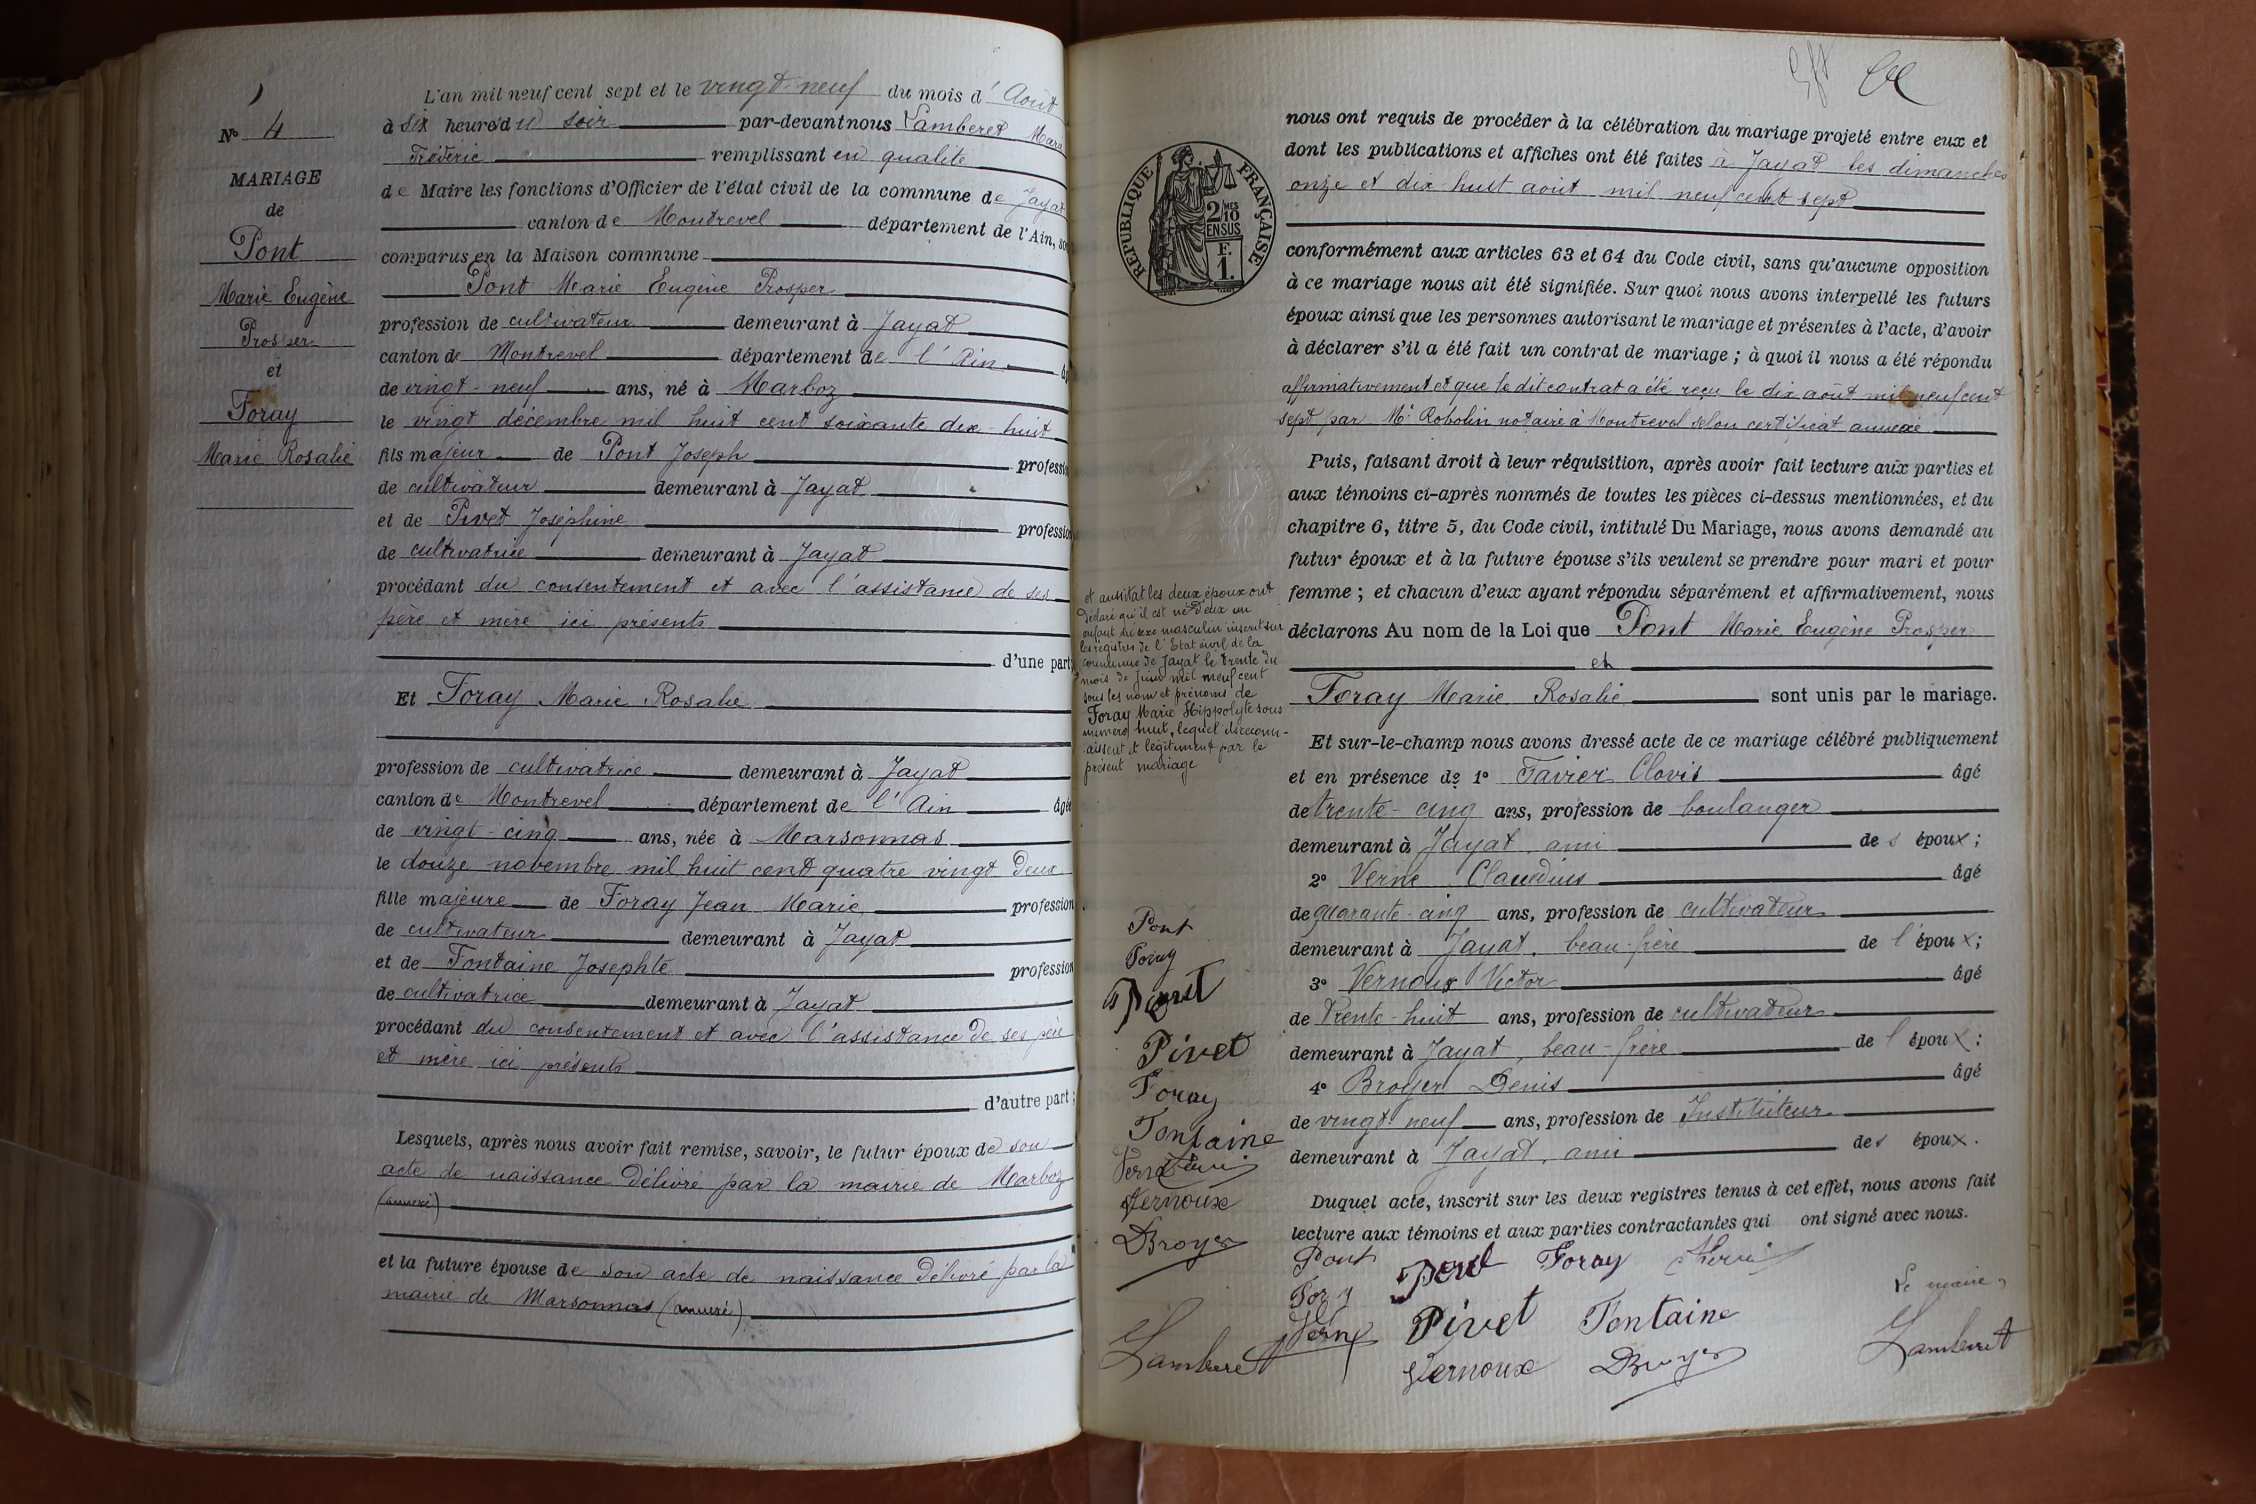 L'an mil neuf cent sept et le vingt-neuf du mois d'Août
à six heures du soir par-devant nous Lamberet Marie
Fréderic remplissant en qualité
de Maire les fonctions d'Officier de l'état civil de la commune de Jayat
canton de Montrevel département de l'Ain, sont
comparus en la Maison commune
Pont Marie Eugène Prosper
profession de cultivateur demeurant à Jayat
canton de Montrevel département de l'Ain âgé
de vingt-neuf ans, né à Marboz
le vingt décembre mil huit cent soixante dix-huit
fils majeur de Pont Joseph profession
de cultivateur demeurant à Jayat
et de Pivet Joséphine profession
de cultivatrice demeurant à Jayat
procédant du consentement et avec l'assistance de ses
père et mère ici présents
d'une part;
Et Foray Marie Rosalie
profession de cultivatrice demeurant à Jayat
canton de Montrevel département de l'Ain âgée
de vingt-cinq ans, née à Marsonnas
le douze novembre mil huit cent quatre vingt deux
fille majeure de Foray Jean Marie profession
de cultivateur demeurant à Jayat
et de Fontaine Josephte profession
de cultivatrice demeurant à Jayat
procédant du consentement et avec l'assistance de ses père
et mère ici présents
d'autre part;
Lesquels, après nous avoir fait remise, savoir, le futur époux de son
acte de naissance délivré par la mairie de Marboz
(annexé)
et la future épouse de son acte de naissance délivré par la
mairie de Marsonnas (annexé)
No 4
MARIAGE
de
Pont
Marie Eugène
Prosper
et
Foray
Marie Rosalie
RÉPUBLIQUE FRANÇAISE
2/10 MES
EN SUS
F.
1.
nous ont requis de procéder à la célébration du mariage projeté entre eux et
dont les publications et affiches ont été faites à Jayat les dimanches
onze et dix huit août mil neuf cent sept
conformément aux articles 63 et 64 du Code civil, sans qu'aucune opposition
à ce mariage nous ait été signifiée. Sur quoi nous avons interpellé les futurs
époux ainsi que les personnes autorisant le mariage et présentes à l'acte, d'avoir
à déclarer s'il a été fait un contrat de mariage; à quoi il nous a été répondu
affirmativement et que le dit contrat a été reçu le dix août mil neuf cent
sept par Me Robolin notaire à Montrevel selon certificat annexé
Puis, faisant droit à leur réquisition, après avoir fait lecture aux parties et
aux témoins ci-après nommés de toutes les pièces ci-dessus mentionnées, et du
chapitre 6, titre 5, du Code civil, intitulé Du Mariage, nous avons demandé au
futur époux et à la future épouse s'ils veulent se prendre pour mari et pour
femme; et chacun d'eux ayant répondu séparément et affirmativement, nous
déclarons Au nom de la Loi que Pont Marie Eugène Prosper
et
Foray Marie Rosalie sont unis par le mariage.
Et sur-le-champ nous avons dressé acte de ce mariage célébré publiquement
et en présence de 1° Favier Clovis âgé
de trente-cinq ans, profession de boulanger
demeurant à Jayat, ami des époux;
2° Verne Claudius âgé
de quarante-cinq ans, profession de cultivateur
demeurant à Jayat, beau-frère de l'époux;
3° Vernoux Victor âgé
de trente-huit ans, profession de cultivateur
demeurant à Jayat, beau-frère de l'époux;
4° Broyer Denis âgé
de vingt neuf ans, profession de Instituteur
demeurant à Jayat, ami des époux.
Duquel acte, inscrit sur les deux registres tenus à cet effet, nous avons fait
lecture aux témoins et aux parties contractantes qui ont signé avec nous.
Pont Pont Foray
Le maire,
Foray Pivet Fontaine
Verne Vernoux Broyer Lamberet
et aussitôt les deux époux ont
déclaré qu'il est né d'eux un
enfant du sexe masculin inscrit sur
les registres de l'Etat civil de la
commune de Jayat le trente du
mois de juin mil neuf cent
sous les nom et prénoms de
Foray Marie Hippolyte sous
numéro huit, lequel ils reconn-
aissent et légitiment par le
présent mariage
Pont
Foray
Pont
Pivet
Foray
Fontaine
Verne
Vernoux
Broyer
Lamberet